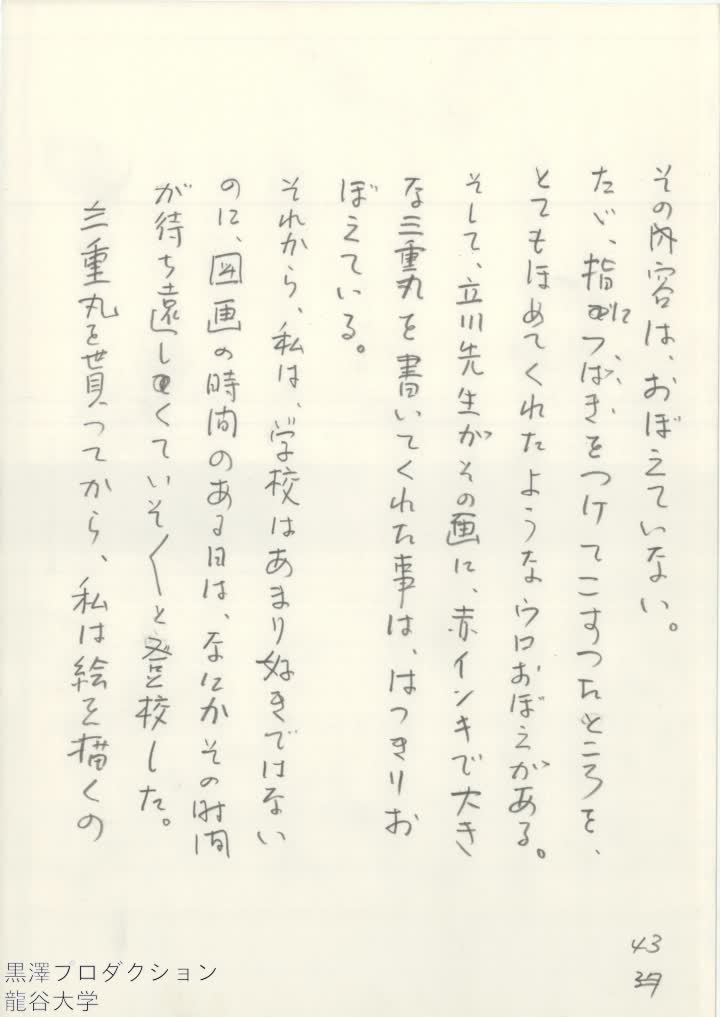 その内容は、おぼえていない。
たゞ、指につばきをつけてこすつたところを、
とてもほめてくれたようなウロおぼえがある。
そして、立川先生がその画に、赤インキで大き
な三重丸を書いてくれた事は、はつきりお
ぼえている。
それから、私は、学校はあまり好きではない
のに、図画の時間のある日は、なにかその時間
が待ち遠しくていそ〱と登校した。
三重丸を貰つてから、私は絵を描くの
43
黒澤プロダクション
龍谷大学